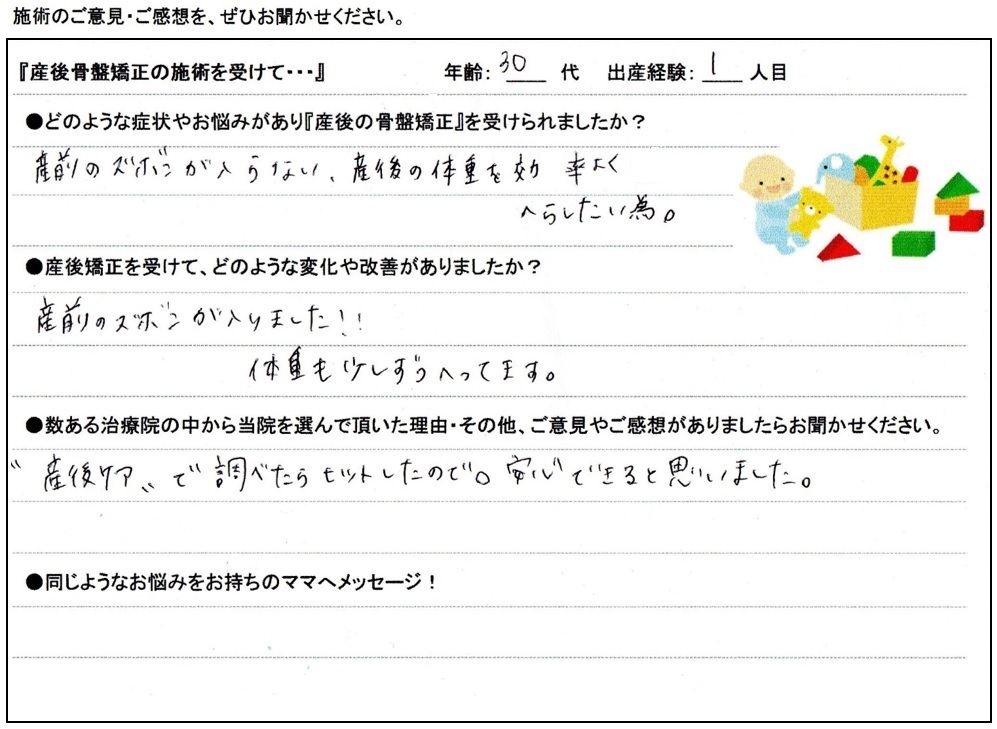 施術のご意見・ご感想を、ぜひお聞かせください。
『産後骨盤矯正の施術を受けて・・・』 年齢: 30 代 出産経験: 1 人目
●どのような症状やお悩みがあり『産後の骨盤矯正』を受けられましたか？
産前のズボンが入らない、産後の体重を効率よく
へらしたい為。
●産後矯正を受けて、どのような変化や改善がありましたか？
産前のズボンが入りました!!
体重も少しずつへってます。
●数ある治療院の中から当院を選んで頂いた理由・その他、ご意見やご感想がありましたらお聞かせください。
〝産後ケア〟で調べたらヒットしたので。安心できると思いました。
●同じようなお悩みをお持ちのママへメッセージ！